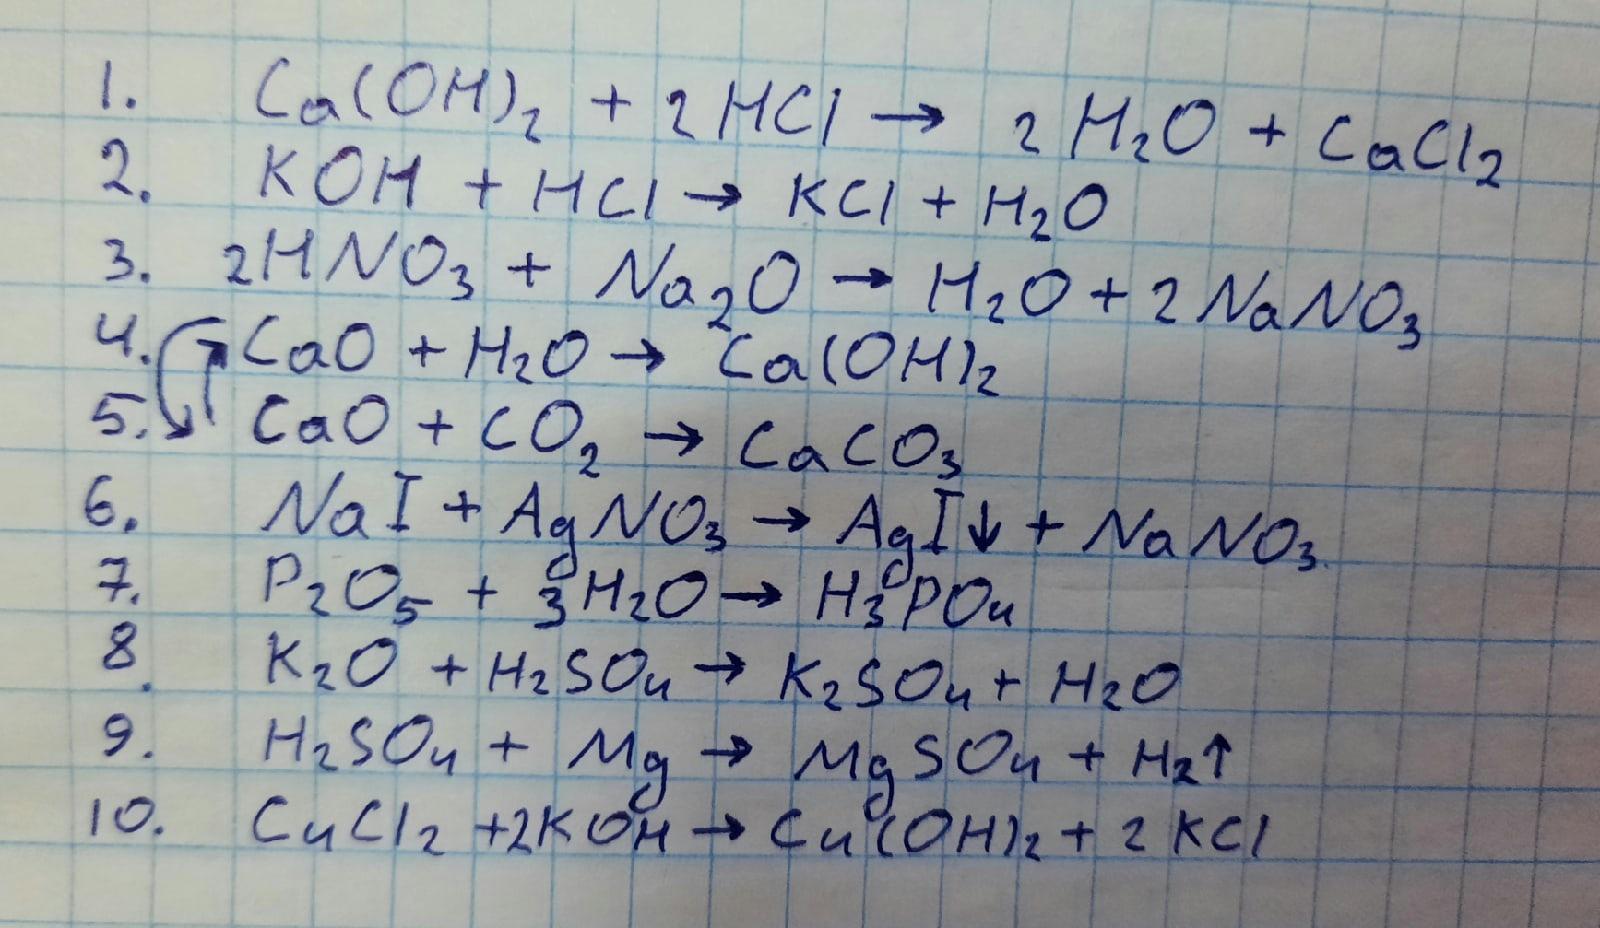 1. Ca(OH)₂ + 2HCl → 2H₂O + CaCl₂
2. KOH + HCl → KCl + H₂O
3. 2HNO₃ + Na₂O → H₂O + 2NaNO₃
4. CaO + H₂O → Ca(OH)₂
5. CaO + CO₂ → CaCO₃
6. NaI + AgNO₃ → AgI↓ + NaNO₃
7. P₂O₅ + 3H₂O → H₃PO₄
8. K₂O + H₂SO₄ → K₂SO₄ + H₂O
9. H₂SO₄ + Mg → MgSO₄ + H₂↑
10. CuCl₂ + 2KOH → Cu(OH)₂ + 2KCl